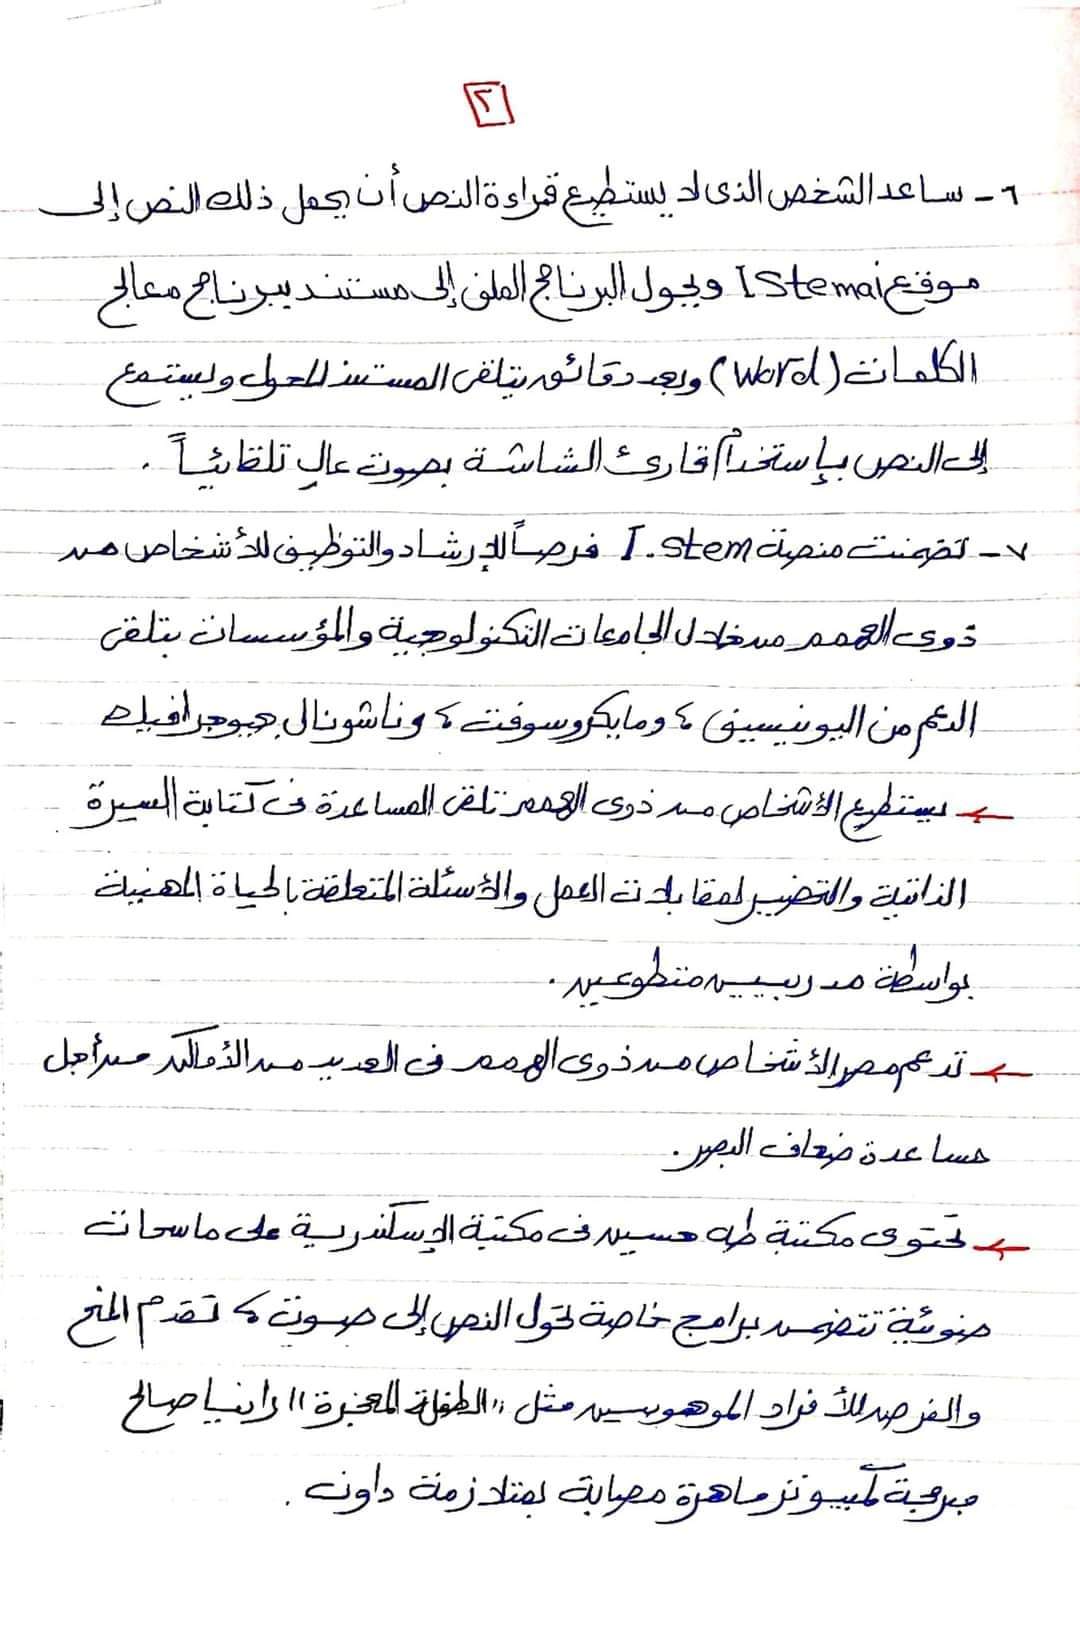 ٢
٦- ساعد الشخص الذى لا يستطيع قراءة النص أن يحمل ذلك النص إلى
موقع I Stemai ويحول البرنامج الملف إلى مستند ببرنامج معالج
الكلمات (Word) وبعد دقائق يتلقى المستند المحول ويستمع
إلى النص بإستخدام قارئ الشاشة بصوت عالٍ تلقائياً .
٧- تضمنت منصة I.stem فرصاً للإرشاد والتوظيف للأشخاص من
ذوى الهمم من خلال الجامعات التكنولوجية والمؤسسات بتلقى
الدعم من اليونيسيف ، ومايكروسوفت ، وناشونال جيوجرافيك
← يستطيع الأشخاص من ذوى الهمم تلقى المساعدة فى كتابة السيرة
الذاتية والتحضير لمقابلات العمل والأسئلة المتعلقة بالحياة المهنية
بواسطة مدربيين متطوعين .
← تدعم مصر الأشخاص من ذوى الهمم فى العديد من الأماكن من أجل
مساعدة ضعاف البصر .
← تحتوى مكتبة طه حسين فى مكتبة الإسكندرية على ماسحات
ضوئية تتضمن برامج خاصة تحول النص إلى صوت ، تقدم المنح
والفرص للأفراد الموهوبين مثل "الطفلة المعجزة" رانيا صالح
مبرمجة كمبيوتر ماهرة مصابة بمتلازمة داون .